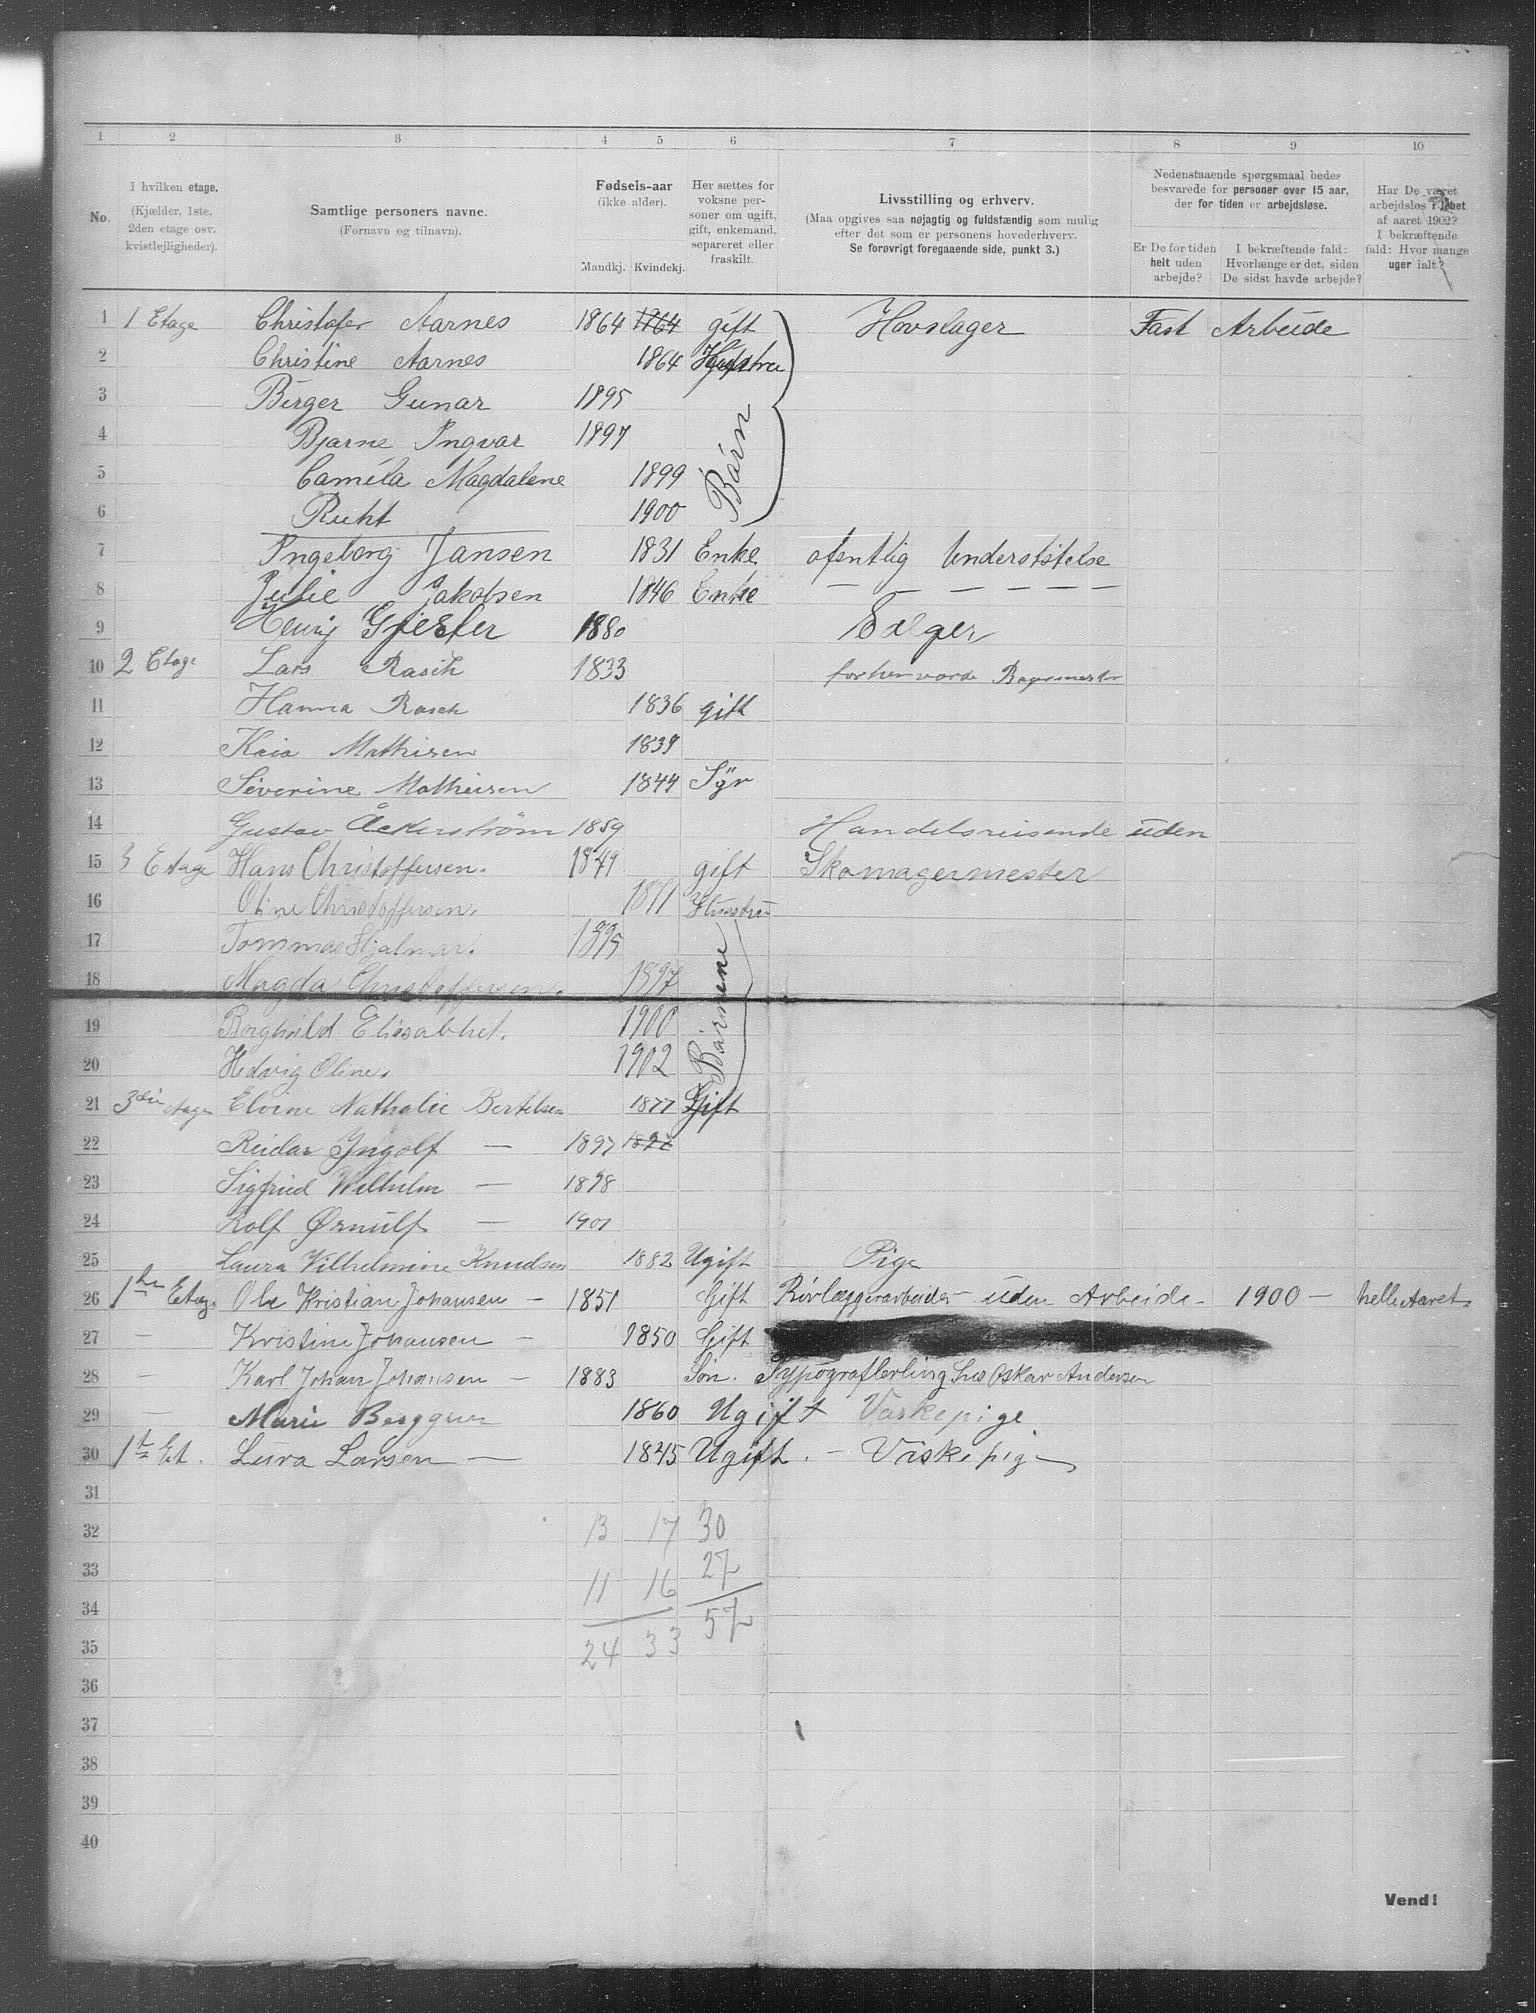 1 2 3 4 5 6 7 8 9 10
No.
I hvilken etage.
(Kjælder, 1ste,
2den etage osv.
kvistlejligheder).
Samtlige personers navne.
(Fornavn og tilnavn).
Fødsels-aar
(ikke alder).
Mandkj. Kvindekj.
Her sættes for
voksne per-
soner om ugift,
gift, enkemand,
separeret eller
fraskilt.
Livsstilling og erhverv.
(Maa opgives saa nøjagtig og fuldstændig som mulig
efter det som er personens hovederhverv.
Se forøvrigt foregaaende side, punkt 3.)
Nedenstaaende spørgsmaal bedes
besvarede for personer over 15 aar,
der for tiden er arbejdsløse.
Er De for tiden
helt uden
arbejde?
I bekræftende fald:
Hvorlænge er det, siden
De sidst havde arbejde?
Har De været
arbejdsløs i løbet
af aaret 1902?
I bekræftende
fald: Hvor mange
uger ialt?
1 1 Etage Christofer Aarnes 1864 1864 gift Hovslager Fast Arbeide
2 Christine Aarnes 1864 Hustru
3 Birger Gunar 1895
4 Bjarne Ingvar 1897
5 Camila Magdalene 1899 Børn
6 Ruht 1900
7 Ingeborg Jansen 1831 Enke ofentlig Understøtelse
8 Julie Jakobsen 1846 Enke — — — — —
9 Henrij 1880 Sælger
10 2 Etage Lars Rasch 1833 forhenværde Bagermester
11 Hanna Rasch 1836 gift
12 Kaia Mathisen 1839
13 Severine Mathisen 1844 Syr
14 Gustav Åckerström 1859 Handelsreisende uden
15 3 Etage Hans Christoffersen. 1849 gift Skomagermester
16 Oline Christoffersen. 1871 Hustru
17 Tommas Hjalmar. 1895
18 Magda Christoffersen. 1897 Børnene
19 Borghild Elisabhet. 1900
20 Hedvig Oline. 1902
21 3die etage Elvine Nathalie Bertelsen 1877 Gift
22 Reidar Ingolf — 1897
23 Sigfried Wilhelm — 1898
24 Rolf Ørnulf — 1901
25 Laura Vilhelmine Knudsen 1882 Ugift Pige
26 1ste Etage Ole Kristian Johansen — 1851 Gift Rørlæggerarbeider uden Arbeide — 1900 — helle Aaret
27 — Kristine Johansen — 1850 Gift
28 — Karl Johan Johansen — 1883 Søn. Typograflerling hos Oskar Andersen
29 — Marie Berggren 1860 Ugift Vaskepige
30 1ste Et. Lura Larsen — 1845 Ugift. — Vaskepige
31
32 13 17 30
33 11 16 27
34 57
35 24 33
36
37
38
39
40
Vend!